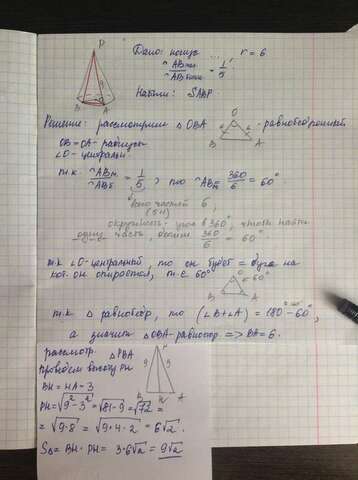 P
B
A
Дано: конус r = 6
◠ABм. / ◠ABбольш. = 1/5
Найти: SABP
Решение: рассмотрим △OBA - равнобедренный
O
6 6
B A
OB = OA - радиусы
∠O - центральн.
т.к. ◠ABм / ◠ABб = 1/5, то ◠ABм = 360/6 = 60°
это частей 6
(5+1)
окружность - угол в 360°, чтобы найти
одну часть, делим 360/6 = 60°
т.к ∠O - центральный, то он будет = дуге на
кот. он опирается, т.е 60°
O
60°
B A
т.к △ равнобедр, то (∠B + ∠A) = 180° - 60°,
а значит △OBA - равностор. => BA = 6.
рассмотр. △PBA
проведем высоту PH
BH = HA = 3
PH = √9² - 3² = √81 - 9 = √72 =
= √9·8 = √9·4·2 = 6√2.
S△ = BH · PH = 3·6√2 = 9√2
P
9 9
B H A